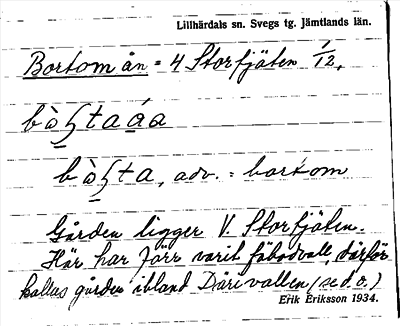 Lillhärdals sn. Svegs tg. Jämtlands län.
Bortom ån = 4 Storfjäten 1/12.
bàʂtaáa
bàʂta, adv. = bortom
Gården ligger V. Storfjäten.
Här har förr varit fäbodvall, därför
kallas gården ibland Därivallen (se d. o.)
Erik Eriksson 1934.